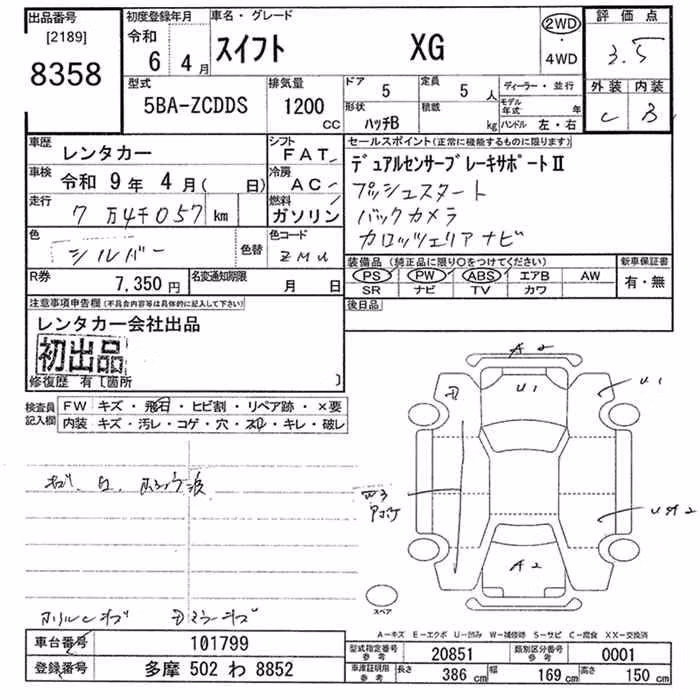 出品番号
[2189]
8358
初度登録年月
令和
6 4月
車名・グレード
スイフト XG
2WD
・
4WD
評価点
3.5
外装 内装
C B
型式
5BA-ZCDDS
排気量
1200
CC
ドア 5
定員 5人
形状 ハッチB
積載 kg
ディーラー・並行
モデル年式 年
ハンドル 左・右
車歴
レンタカー
シフト
FAT
車検
令和 9年 4月( 日)
冷房
AC
走行
7万4千057 km
燃料
ガソリン
色
シルバー
色替
色コード
ZMU
R券
7,350円
名変通知期限
月 日
セールスポイント(正常に機能するものに限ります)
デュアルセンサーブレーキサポートⅡ
プッシュスタート
バックカメラ
カロッツェリアナビ
装備品(純正品に限り○をつけてください)
PS PW ABS エアB AW
SR ナビ TV カワ
新車保証書
有・無
後日品
注意事項申告欄(不具合内容等は具体的に記入して下さい)
レンタカー会社出品
初出品
修復歴 有〔箇所 〕
検査員
記入欄
FW キズ・飛石・ヒビ割・リペア跡・×要
内装 キズ・汚レ・コゲ・穴・スレ・キレ・破レ
A2
U1
U1
A2
スペア
A-キズ E-エクボ U-凹み W-補修跡 S-サビ C-腐食 XX-交換済
車台番号
101799
登録番号
多摩 502 わ 8852
型式指定番号
参考
20851
類別区分番号
参考
0001
車庫証明用
参考
長さ 386 cm
幅 169 cm
高さ 150 cm